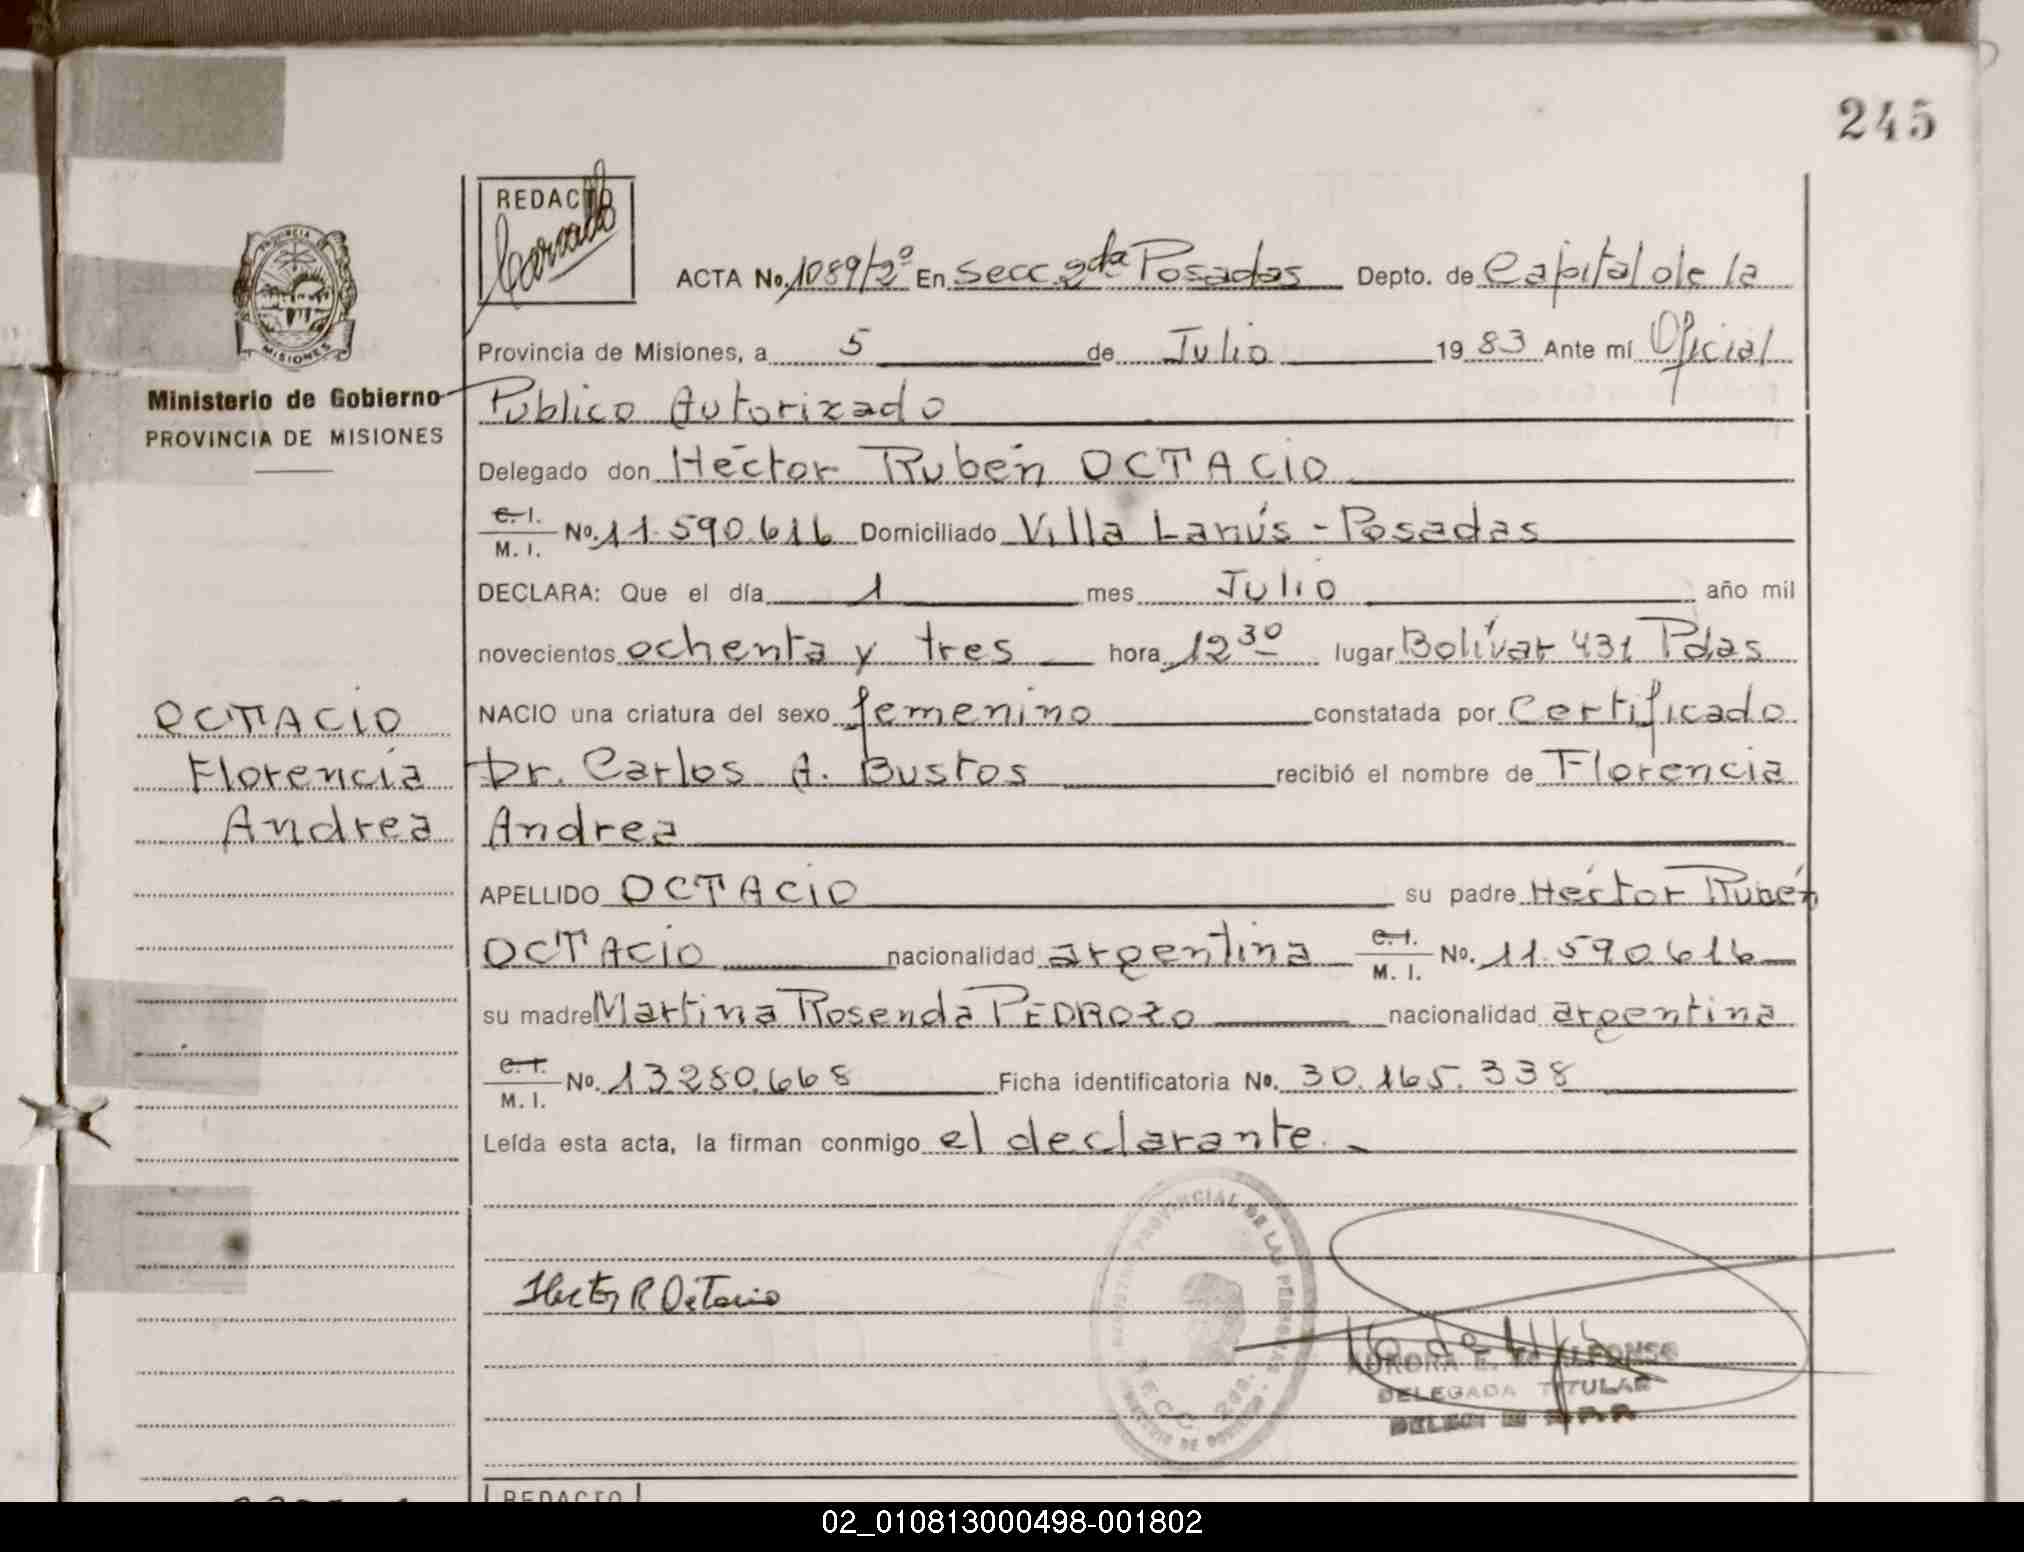 245
REDACTO
PROVINCIA DE
MISIONES
ACTA No. 1089/2º En Secc 2da Posadas Depto. de Capital de la
Provincia de Misiones, a 5 de Julio 19 83 Ante mí Oficial
Ministerio de Gobierno
Público Autorizado
PROVINCIA DE MISIONES
Delegado don Héctor Rubén OCTACIO
C. I.
M. I. No. 11.590.616 Domiciliado Villa Lanús - Posadas
DECLARA: Que el día 1 mes Julio año mil
novecientos ochenta y tres hora 12 30 lugar Bolívar 431 Pdas
OCTACIO
NACIO una criatura del sexo femenino constatada por Certificado
Florencia
Dr. Carlos A. Bustos recibió el nombre de Florencia
Andrea
Andrea
APELLIDO OCTACIO su padre Héctor Rubén
OCTACIO nacionalidad argentina C. I. M. I. No. 11.590.616
su madre Martina Rosenda PEDROZO nacionalidad argentina
C. I.
M. I. No. 13280.668 Ficha identificatoria No. 30.165.338
Leída esta acta, la firman conmigo el declarante.
PROVINCIAL DE LAS PERSONAS
SECC. 2da.
Hector R Octacio
AURORA E. DE ALFONSO
DELEGADA TITULAR
REDACTO
02_010813000498-001802